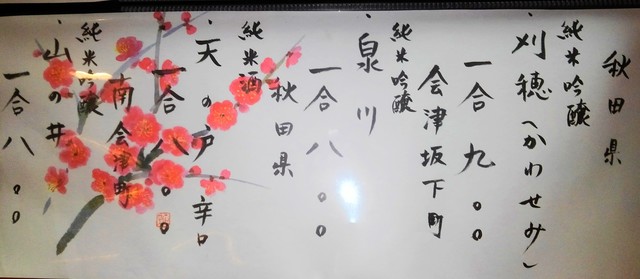 秋田県
純米吟醸
・刈穂(かわせみ)
一合 九〇〇
会津坂下町
純米吟醸
・泉川
一合 八〇〇
秋田県
純米酒
・天の戸 辛口
一合 八〇〇
南会津町
純米吟醸
・山の井
一合 八〇〇